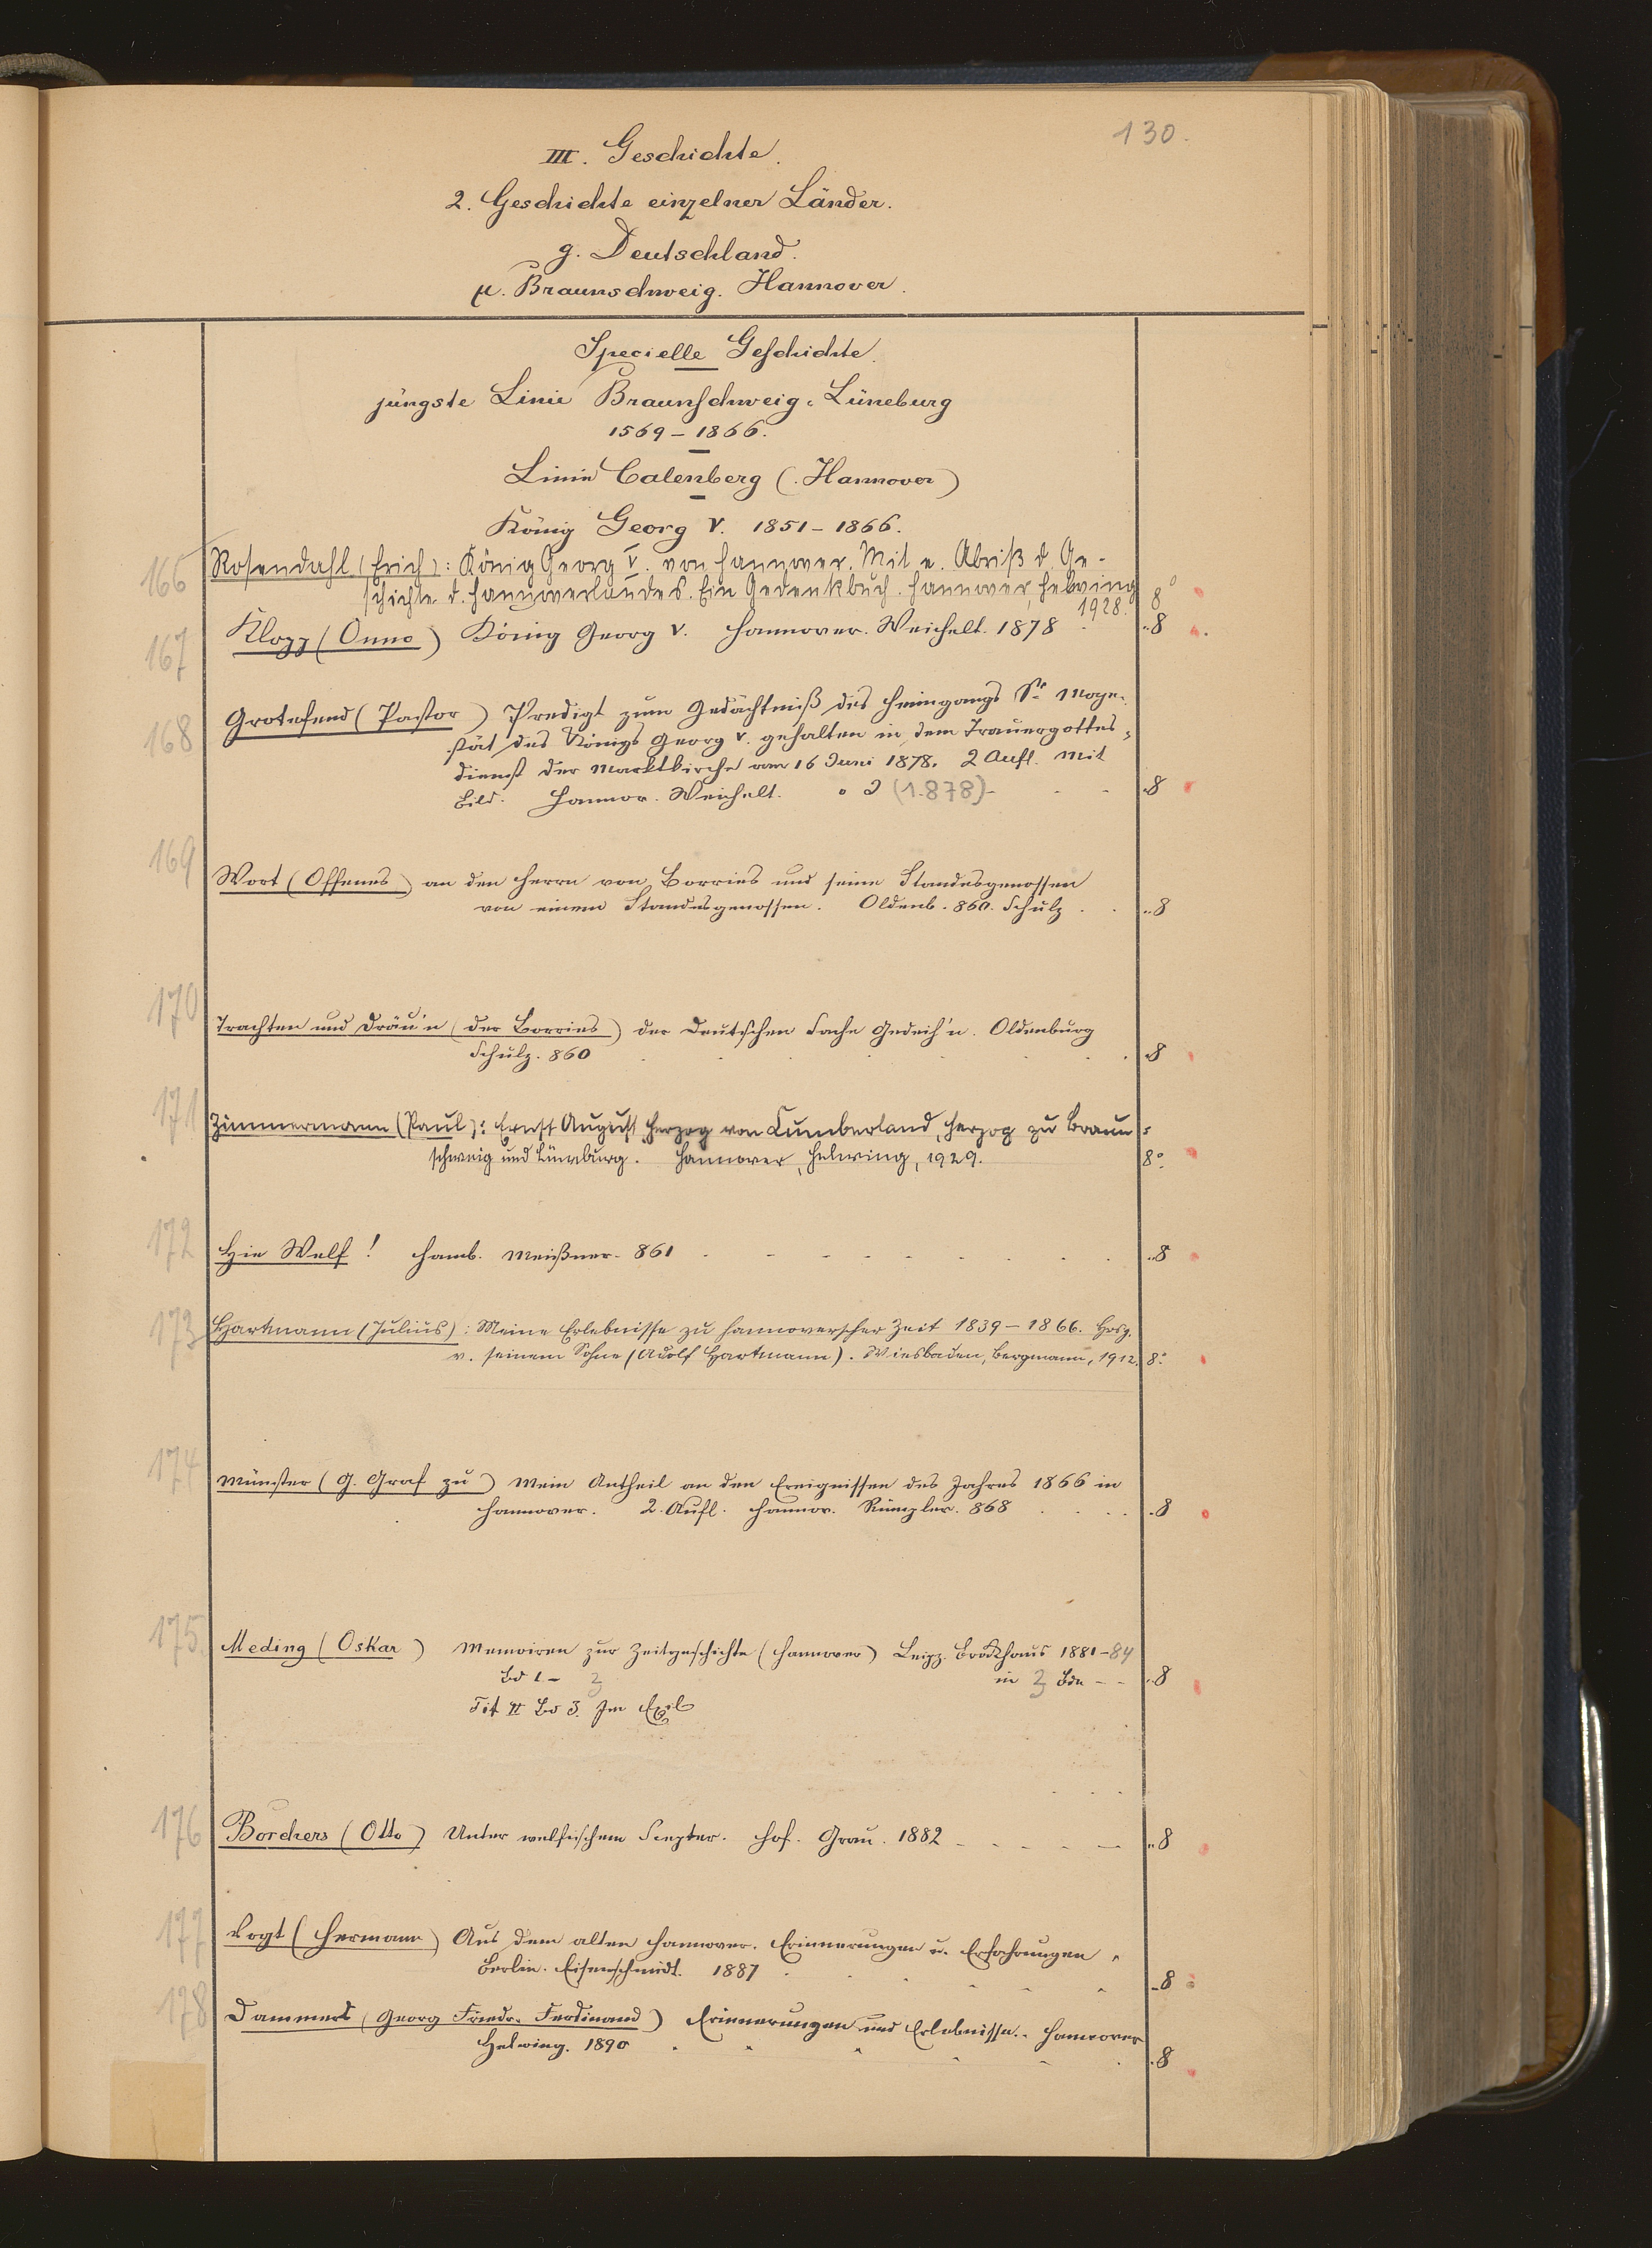 130.
III. Geschichte.
2. Geschichte einzelner Länder.
g. Deutschland.
µ. Braunschweig. Hannover.
Specielle Geschichte.
jüngste Linie Braunschweig-Lüneburg
1569-1866.
Linie Calenberg (Hannover)
König Georg V. 1851-1866.
166 Rosendahl (Erich): König Georg V. von Hannover. Mit e. Abriß d. Ge-
schichte d. Hannoverlandes. Ein Gedenkbuch. Hannover, Helwing 8°
1928.
167 Klopp (Onno) König Georg V. Hannover. Weichelt. 1878 8
168 Grotefend (Pastor) Predigt zum Gedächtniß des Heimgangs Sr Maje-
stät des Königs Georg V. gehalten in dem Trauergottes-
dienst der Marktkirche am 16 Juni 1878. 2 Aufl. Mit
Bild. Hannov. Weichelt. o J (1878) 8
169 Wort (Offenes) an den Herrn von Borries und seine Standesgenossen
von einem Standesgenossen. Oldenb. 860. Schulz 8
170 Trachten und Dräu'n (der Borries) der Deutschen Sache Gedeih'n. Oldenburg
Schulz. 860 8
171 Zimmermann (Paul): Ernst August Herzog von Cumberland, Herzog zu Braun-
schweig und Lüneburg. Hannover, Helwing, 1929. 8°
172 Hie Welf! Hamb. Meißner. 861 8
173 Hartmann (Julius): Meine Erlebnisse zu hannoverscher Zeit 1839-1866. Hrsg.
v. seinem Sohne (Adolf Hartmann). Wiesbaden, Bergmann, 1912. 8°
174 Münster (G. Graf zu) Mein Antheil an den Ereignissen des Jahres 1866 in
Hannover. 2. Aufl. Hannov. Rümpler. 868 8
175. Meding (Oskar) Memoiren zur Zeitgeschichte (Hannover) Leipz. Brockhaus 1881-84
Bd 1-3 in 3 Bdn 8
Tit II Bd 3. Im Exil
176 Borchers (Otto) Unter welfischem Scepter. Hof. Grau. 1882 8
177 Vogt (Hermann) Aus dem alten Hannover. Erinnerungen u. Erfahrungen
Berlin. Eisenschmidt. 1887 8
178 Dammers (Georg Friedr. Ferdinand) Erinnerungen und Erlebnisse. Hannover
Helwing. 1890 8